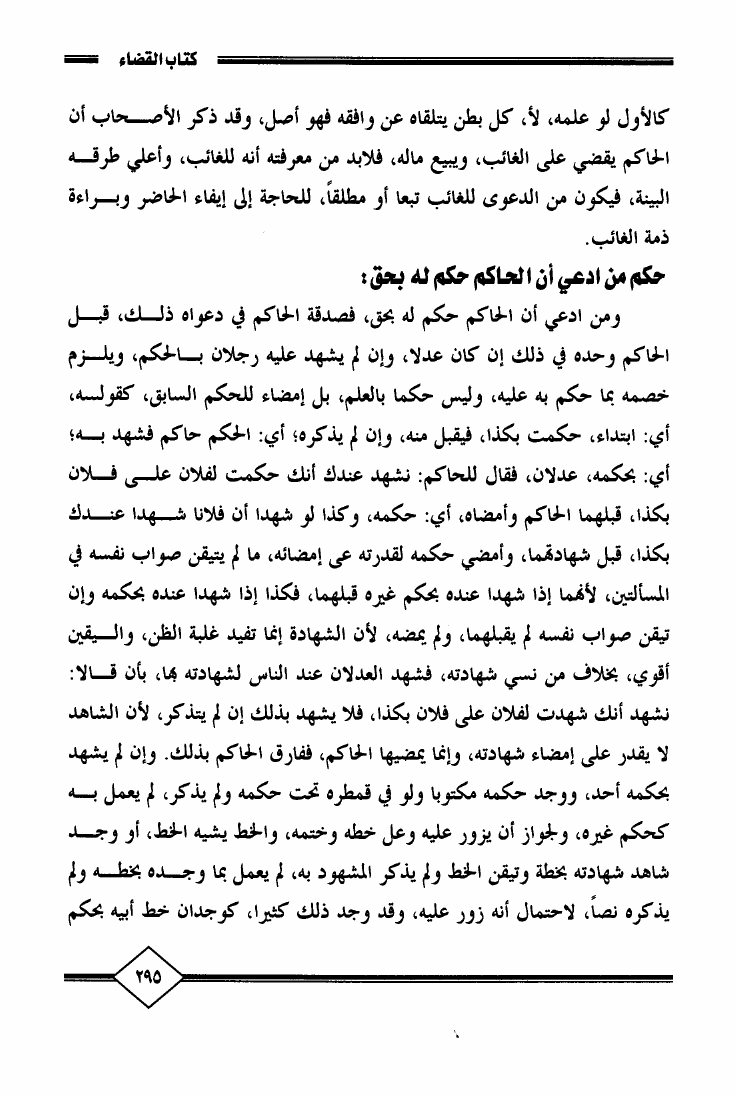 كتاب القضاء
كالأول لو علمه، لأ، كل بطن يتلقاه عن وافقه فهو أصل، وقد ذكر الأصحاب أن
الحاكم يقضي على الغائب، ويبيع ماله، فلابد من معرفته أنه للغائب، وأعلي طرقه
البينة، فيكون من الدعوى للغائب تبعا أو مطلقاً، للحاجة إلى إيفاء الحاضر وبراءة
ذمة الغائب.
حكم من ادعي أن الحاكم حكم له بحق:
ومن ادعي أن الحاكم حكم له بحق، فصدقة الحاكم في دعواه ذلك، قبل
الحاكم وحده في ذلك إن كان عدلا، وإن لم يشهد عليه رجلان بالحكم، ويلزم
خصمه بما حكم به عليه، وليس حكما بالعلم، بل إمضاء للحكم السابق، كقوله،
أي: ابتداء، حكمت بكذا، فيقبل منه، وإن لم يذكره؛ أي: الحكم حاكم فشهد به؛
أي: بحكمه، عدلان، فقال للحاكم: نشهد عندك أنك حكمت لفلان على فلان
بكذا، قبلهما الحاكم وأمضاه، أي: حكمه، وكذا لو شهدا أن فلانا شهدا عندك
بكذا، قبل شهادتهما، وأمضي حكمه لقدرته عى إمضائه، ما لم يتيقن صواب نفسه في
المسألتين، لأنهما إذا شهدا عنده بحكم غيره قبلهما، فكذا إذا شهدا عنده بحكمه وإن
تيقن صواب نفسه لم يقبلهما، ولم يمضه، لأن الشهادة إنما تفيد غلبة الظن، واليقين
أقوي، بخلاف من نسي شهادته، فشهد العدلان عند الناس لشهادته بها، بأن قالا:
نشهد أنك شهدت لفلان على فلان بكذا، فلا يشهد بذلك إن لم يتذكر، لأن الشاهد
لا يقدر على إمضاء شهادته، وإنما يمضيها الحاكم، ففارق الحاكم بذلك. وإن لم يشهد
بحكمه أحد، ووجد حكمه مكتوبا ولو في قمطره تحت حكمه ولم يذكر، لم يعمل به
كحكم غيره، ولجواز أن يزور عليه وعل خطه وختمه، والخط يشبه الخط، أو وجد
شاهد شهادته بخطة وتيقن الخط ولم يذكر المشهود به، لم يعمل بما وجده بخطه ولم
يذكره نصاً، لاحتمال أنه زور عليه، وقد وجد ذلك كثيرا، كوجدان خط أبيه بحكم
٢٩٥